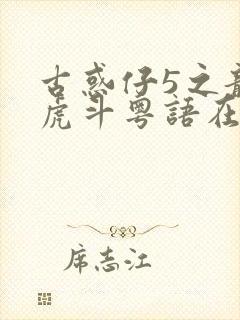 古惑仔5之龍
虎斗粵語在
席志江